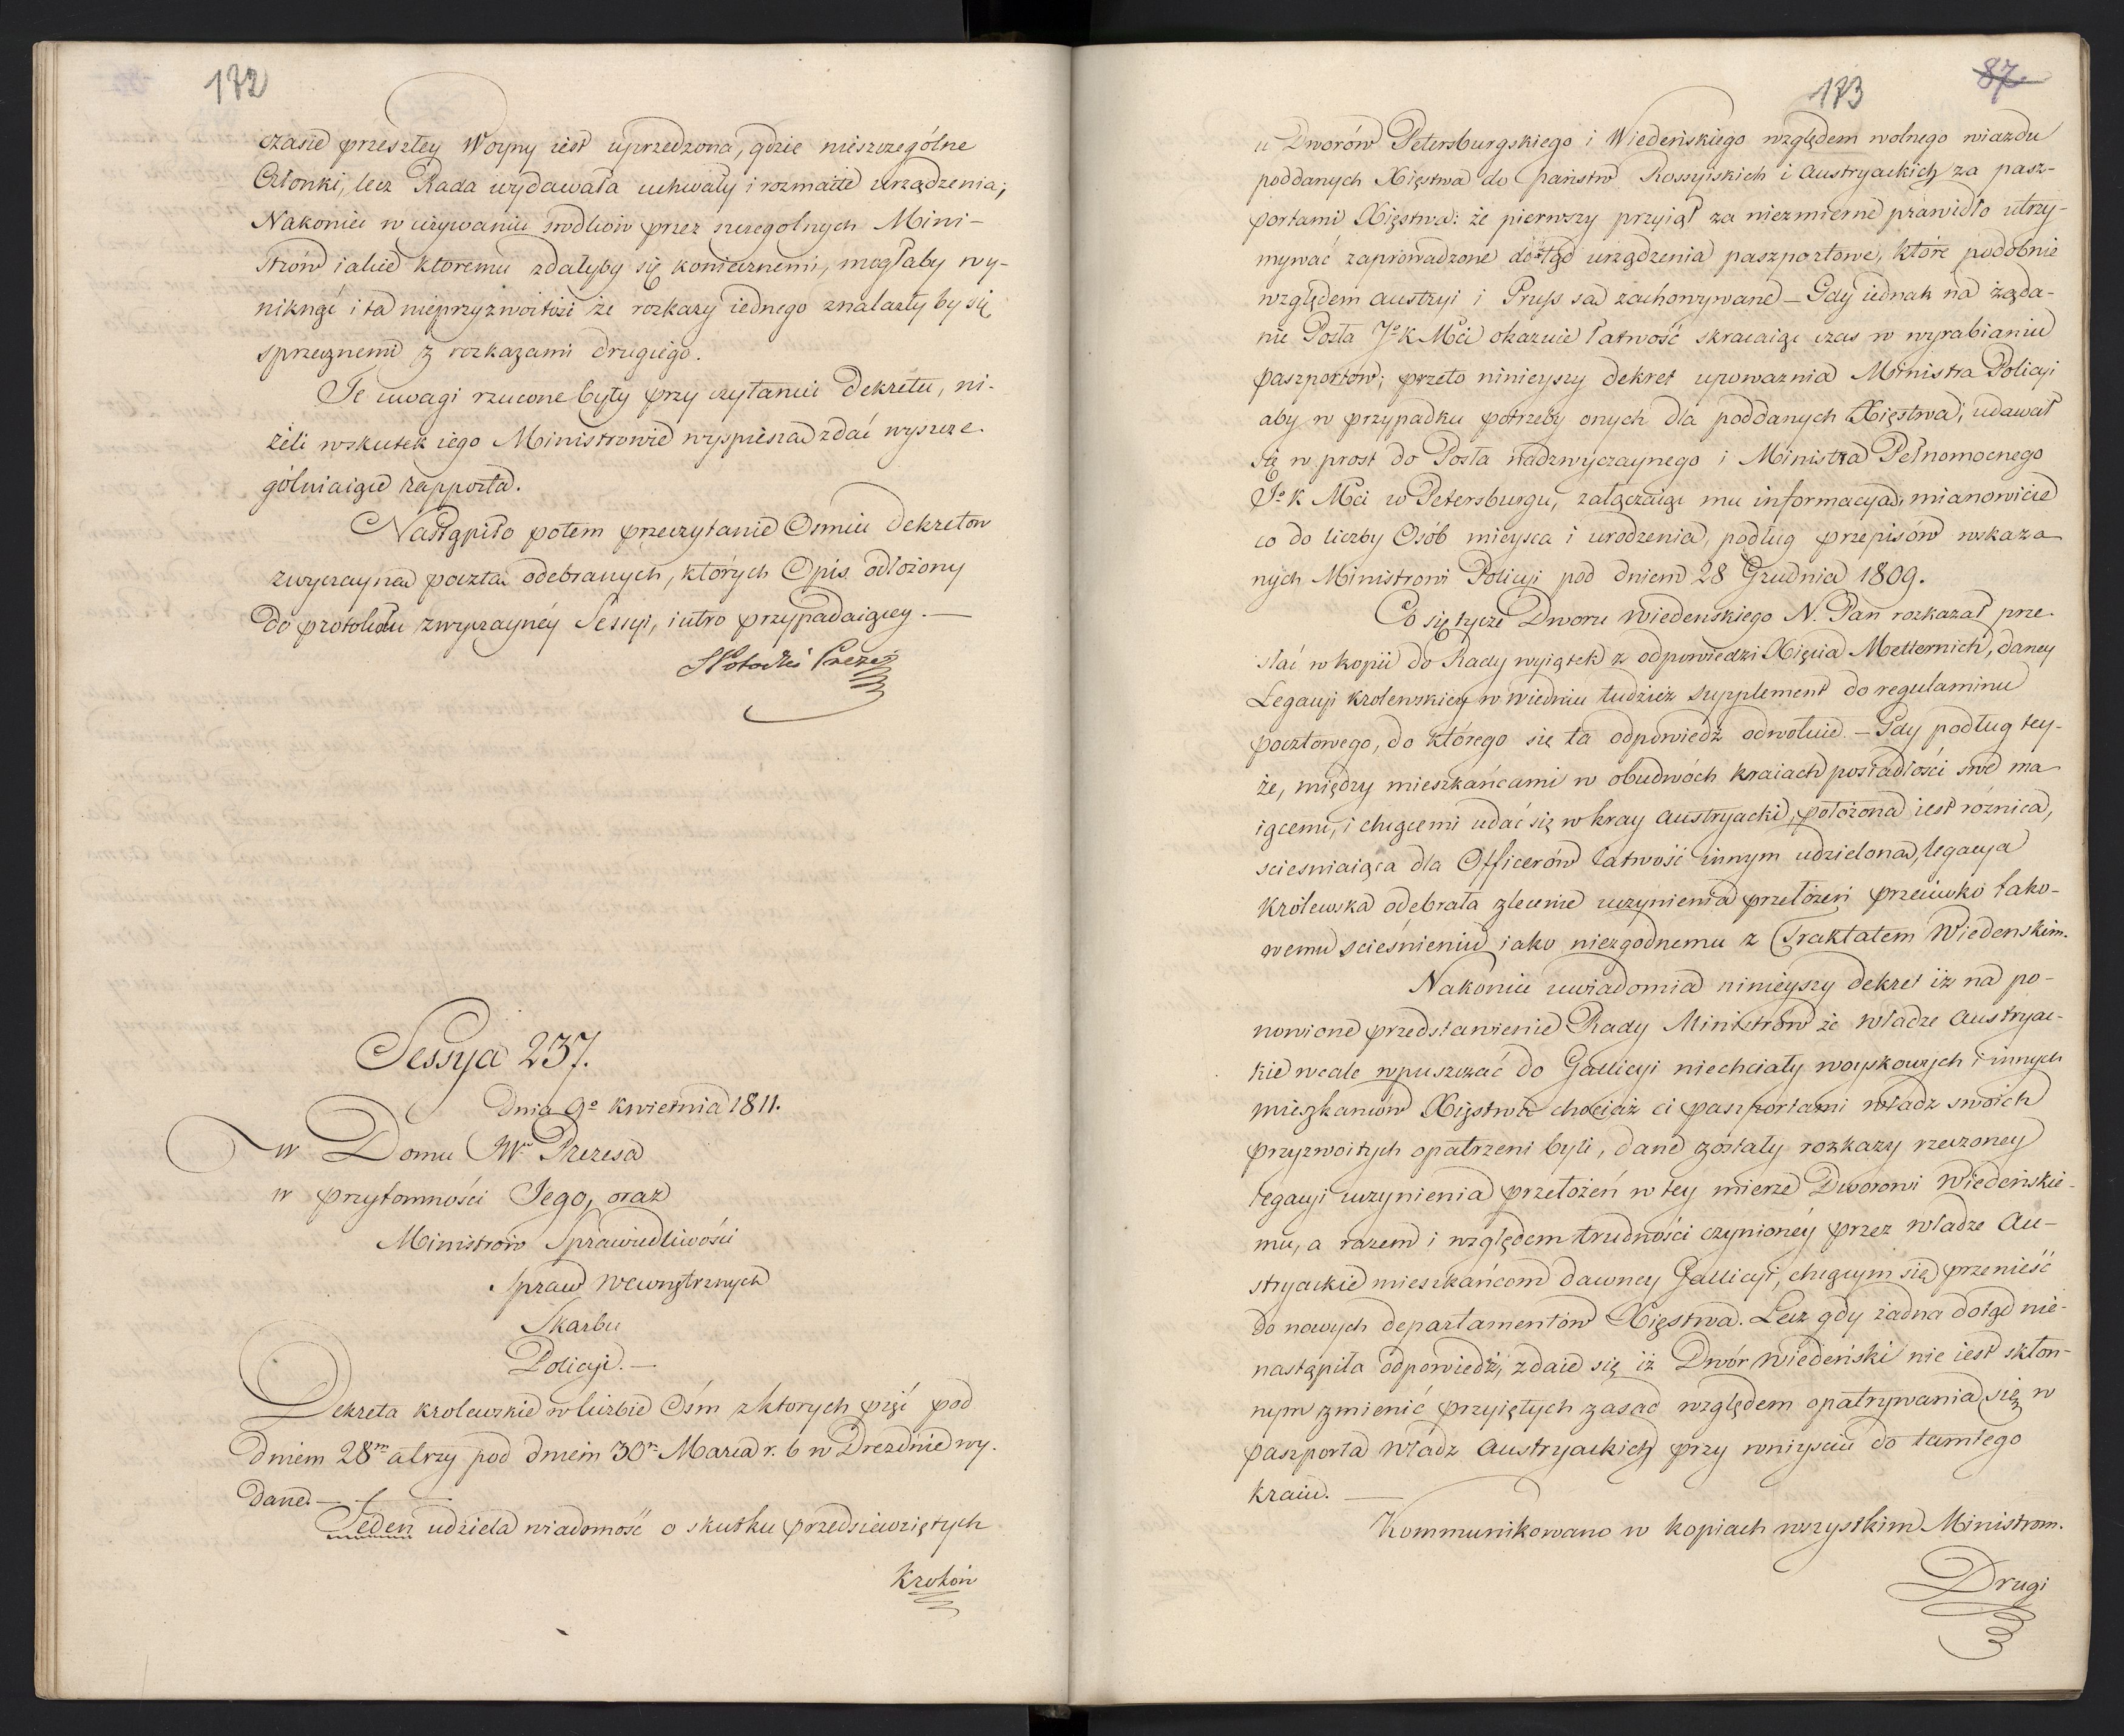 172
czasie przeszłey Woyny iest uprzedzona, gdzie nieszczególne
Członki, lecz Rada wydawała uchwały i rozmaite urządzenia;
Nakoniec w używaniu srodkow przez szczegolnych Mini-
strów iakie ktoremu zdałyby się koniecznemi, mogłaby wy-
niknąć i ta nieprzyzwoitość że rozkazy iednego znalazły by się
sprzecznemi z rozkazami drugiego.
Te uwagi rzucone były przy czytaniu Dekretu, ni-
żeli wskutek iego Ministrowie wyspieszą zdać wyszcze-
gólniaiące rapporta.
Nastąpiło potem przeczytanie Osmiu Dekretow
zwyczayną pocztą odebranych, których Opis odłożony
do protokołu zwyczayney Sessyi, iutro przypadaiącey. —
SPotocki Prezes
Sessya 237.
Dnia 9o Kwietnia 1811.
w Domu JW. Prezesa
w przytomności Jego, oraz
Ministrów Sprawiedliwości
Spraw Wewnętrznych
Skarbu
Policyi. —
Dekreta krolewskie w liczbie Ośm z ktorych pięć pod
dniem 28m a trzy pod dniem 30m Marca r. b w Dreznie wy-
dane. —
Jeden udziela wiadomość o skutku przedsiewziętych
Krokow
173
87.
u Dworów Petersburgskiego i Wiedeńskiego względem wolnego wiazdu
poddanych Xięstwa do państw Rossyiskich i Austryackich za pasz-
portami Xięstwa: że pierwszy przyiął za niezmierne prawidło utrzy-
mywać zaprowadzone dotąd urządzenia paszportowe, które podobnie
względem Austryi i Pruss są zachowywane — Gdy iednak na żąda-
nie Posła Jo K Mci okazuie łatwość skracaiąc czas w wyrabianiu
paszportow; przeto ninieyszy dekret upoważnia Ministra Policyi
aby w przypadku potrzeby onych dla poddanych Xięstwa, udawał
się w prost do Posła nadzwyczaynego i Ministra Pełnomocnego
Jo K Mci w Petersburgu, załączaiąc mu informacyą, mianowicie
co do liczby Osób mieysca i urodzenia, podług przepisów wskaza-
nych Ministrowi Policyi pod dniem 28 Grudnia 1809.
Co się tycze Dworu Wiedenskiego N. Pan rozkazał prze-
słać w kopii do Rady wyiątek z odpowiedzi Xięcia Metternich, daney
Legacyi krolewskiey w Wiedniu tudzież supplement do regulaminu
pocztowego, do którego się ta odpowiedź odwołuie. — Gdy podług tey-
że, między mieszkańcami w obudwóch kraiach posiadłości swe ma-
iącemi, i chcącemi udać się w kray Austryacki, położona iest różnica,
scieśniaiąca dla Officerów łatwość innym udzieloną, legacya
Królewska odebrała zlecenie uczynienia przełożeń przeciwko tako-
wemu scieśnieniu iako niezgodnemu z Traktatem Wiedenskim.
Nakoniec uwiadomia ninieyszy dekret iż na po-
nowione przedstawienie Rady Ministrów że władze Austryac-
kie wcale wpuszczać do Gallicyi niechciały woyskowych i innych
mieszkancow Xięstwa chociaż ci paszportami władz swoich
przyzwoitych opatrzeni byli, dane zostały rozkazy rzeczoney
legacyi uczynienia przełożeń w tey mierze Dworowi Wiedeńskie-
mu, a razem i względem trudności czynioney przez władze Au-
stryackie mieszkańcom dawney Gallicyi, chcącym się przenieść
do nowych departamentów Xięstwa. Lecz gdy żadna dotąd nie-
nastąpiła odpowiedź, zdaie się iż Dwór Wiedeński nie iest skłon-
nym zmienić przyiętych zasad względem opatrywania się w
paszporta władz Austryackich przy wniysciu do tamtego
kraiu. —
Kommunikowano w kopiach wszystkim Ministrom.
Drugi